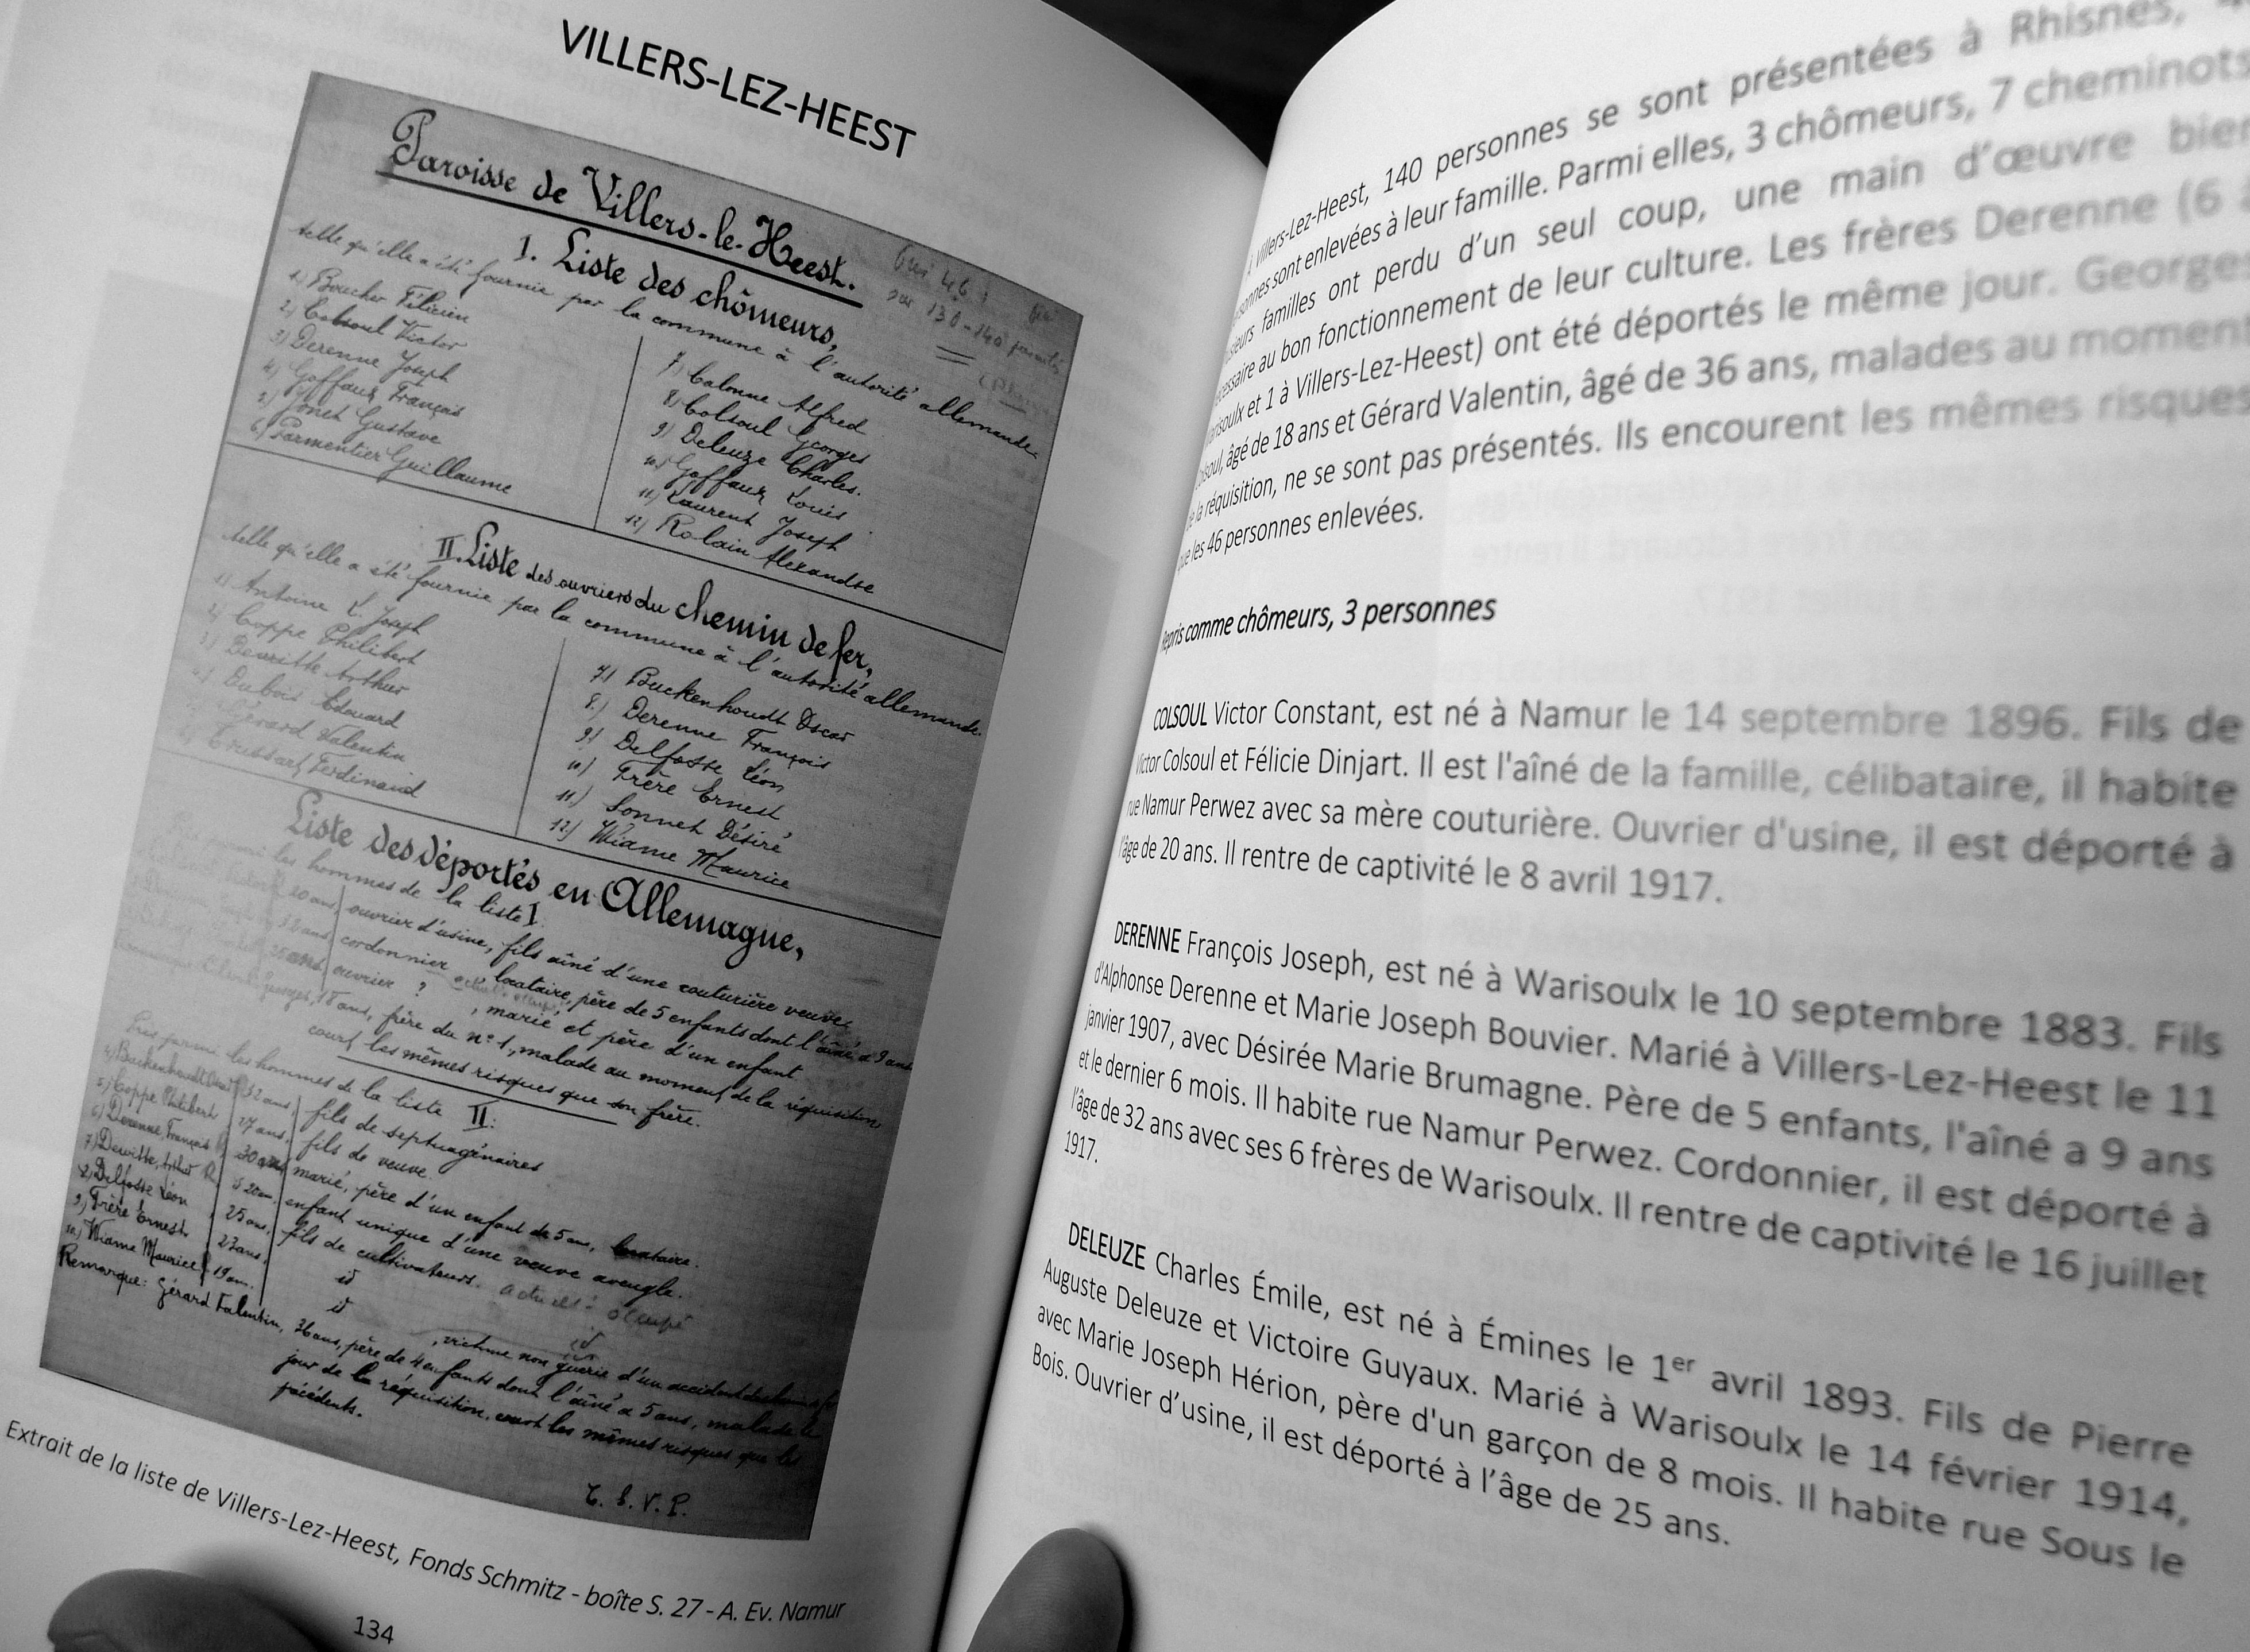 VILLERS-LEZ-HEEST
Paroisse de Villers-le-Heest.
I. Liste des chômeurs,
telle qu'elle a été fournie par la commune à l'autorité allemande.
1) Boucher Félicien
2) Colsoul Victor
3) Derenne Joseph
4) Goffaux François
5) Jonet Gustave
6) Parmentier Guillaume
7) Calonne Alfred
8) Colsoul Georges
9) Deleuze Charles.
10) Goffaux Louis
11) Laurent Joseph
12) Rolain Alexandre
II. Liste des ouvriers du chemin de fer,
telle qu'elle a été fournie par la commune à l'autorité allemande.
1) Antoine L. Joseph
2) Coppe Philibert
3) Dewitte Arthur
4) Dubois Edouard
5) Gérard Valentin
6) Ferdinand
7) Buckenhoudt Oscar
8) Derenne François
9) Delfosse Léon
10) Frère Ernest
11) Sonnet Désiré
12) Wiame Maurice
Liste des déportés en Allemagne,
parmi les hommes de la liste I.
20 ans, ouvrier d'usine, fils aîné d'une couturière veuve.
32 ans, cordonnier, locataire, père de 5 enfants dont l'aîné a 9 ans
25 ans, ouvrier ? , marié et père d'un enfant
Georges, 18 ans, frère du n° 1, malade au moment de la réquisition,
court les mêmes risques que son frère.
Pris parmi les hommes de la liste II:
4) Buckenhoudt Oscar 32 ans, fils de septuagénaires
5) Coppe Philibert 27 ans, fils de veuve
6) Derenne, François 30 ans, marié, père d'un enfant de 5 ans, locataire.
7) Dewitte, Arthur 20 ans, enfant unique d'une veuve aveugle.
8) Delfosse Léon 25 ans, fils de cultivateurs. occupé
9) Frère Ernest 23 ans, id
10) Wiame Maurice 19 ans. id , victime non guérie d'un accident
Remarque: Gérard Valentin, 36 ans, père de 4 enfants dont l'aîné a 5 ans, malade le
jour de la réquisition, court les mêmes risques que les
précédents.
T. S. V. P.
Extrait de la liste de Villers-Lez-Heest, Fonds Schmitz - boîte S. 27 - A. Ev. Namur
134
À Villers-Lez-Heest, 140 personnes se sont présentées à Rhisnes,
sont enlevées à leur famille. Parmi elles, 3 chômeurs, 7 cheminots
familles ont perdu d'un seul coup, une main d'œuvre bien
au bon fonctionnement de leur culture. Les frères Derenne (6 à
Warisoulx et 1 à Villers-Lez-Heest) ont été déportés le même jour. Georges
Colsoul, âgé de 18 ans et Gérard Valentin, âgé de 36 ans, malades au moment
de la réquisition, ne se sont pas présentés. Ils encourent les mêmes risques
que les 46 personnes enlevées.
Repris comme chômeurs, 3 personnes
COLSOUL Victor Constant, est né à Namur le 14 septembre 1896. Fils de
Victor Colsoul et Félicie Dinjart. Il est l'aîné de la famille, célibataire, il habite
rue Namur Perwez avec sa mère couturière. Ouvrier d'usine, il est déporté à
l'âge de 20 ans. Il rentre de captivité le 8 avril 1917.
DERENNE François Joseph, est né à Warisoulx le 10 septembre 1883. Fils
d'Alphonse Derenne et Marie Joseph Bouvier. Marié à Villers-Lez-Heest le 11
janvier 1907, avec Désirée Marie Brumagne. Père de 5 enfants, l'aîné a 9 ans
et le dernier 6 mois. Il habite rue Namur Perwez. Cordonnier, il est déporté à
l'âge de 32 ans avec ses 6 frères de Warisoulx. Il rentre de captivité le 16 juillet
1917.
DELEUZE Charles Émile, est né à Émines le 1er avril 1893. Fils de Pierre
Auguste Deleuze et Victoire Guyaux. Marié à Warisoulx le 14 février 1914,
avec Marie Joseph Hérion, père d'un garçon de 8 mois. Il habite rue Sous le
Bois. Ouvrier d'usine, il est déporté à l'âge de 25 ans.